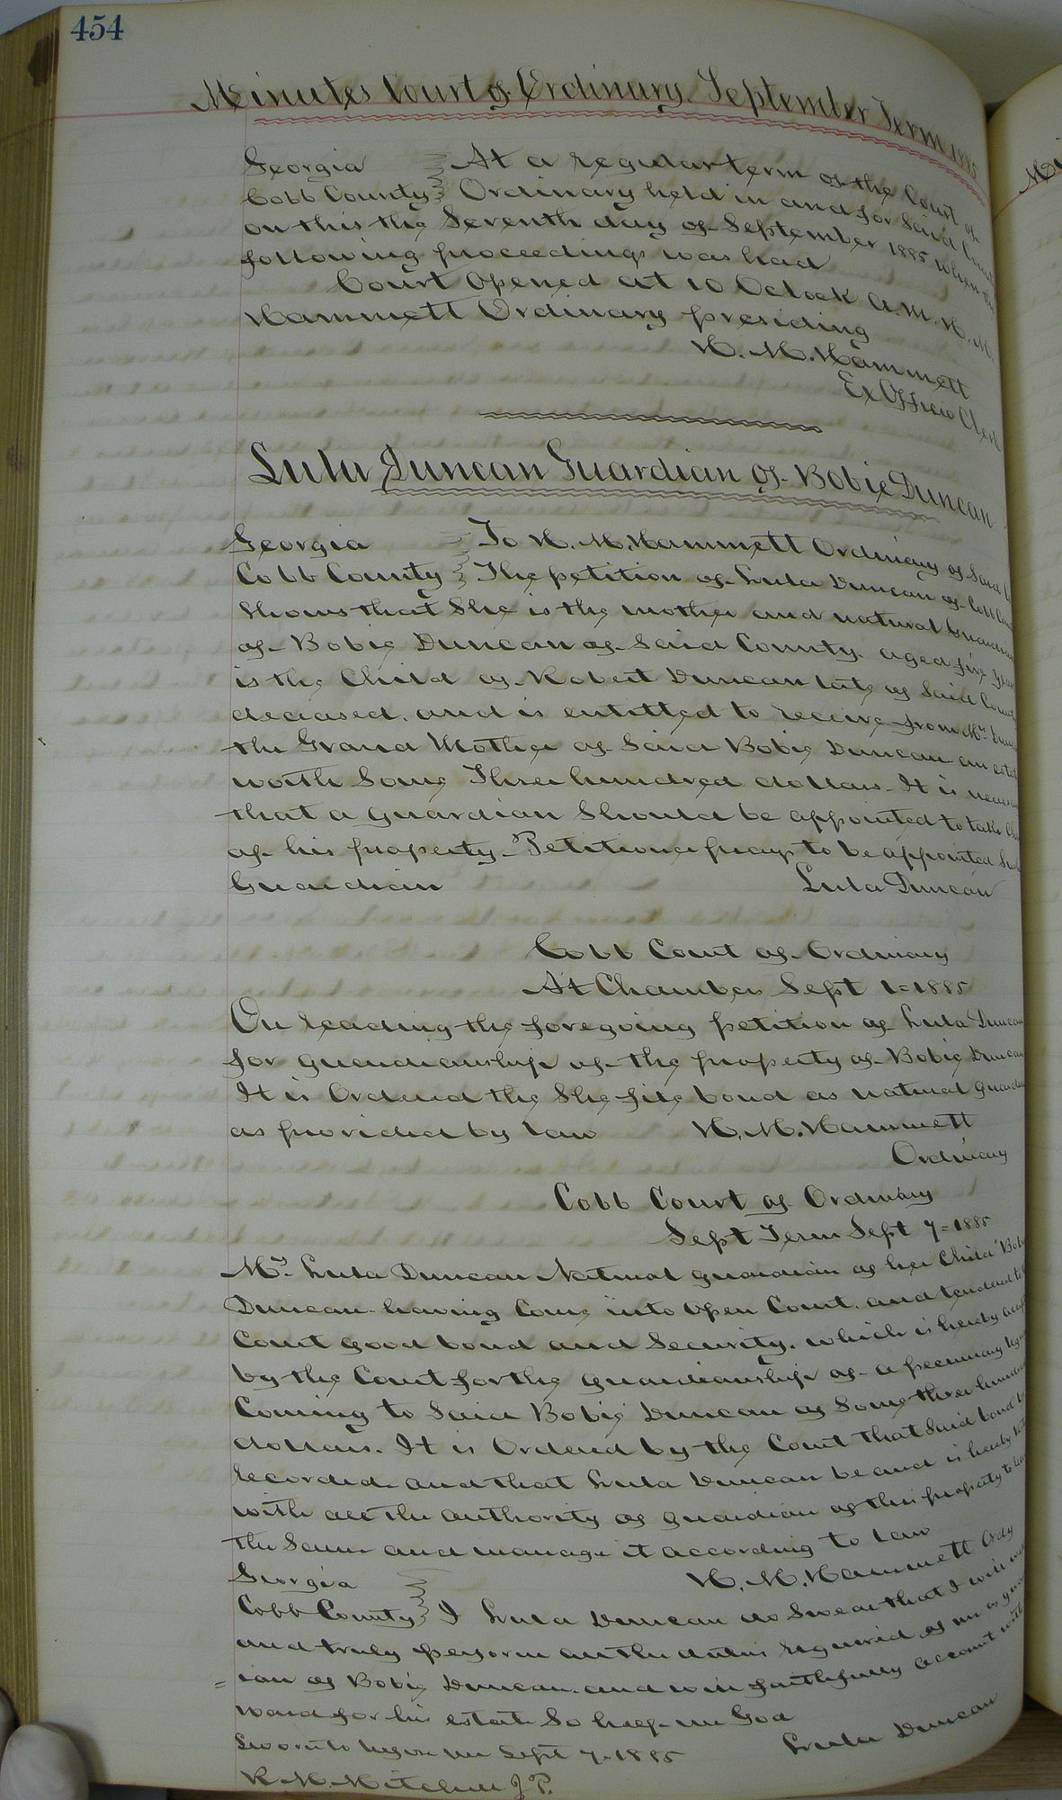 454
Minutes Court of Ordinary September Term 1885
Georgia At a regular term of the Court of
Cobb County Ordinary held in and for Said County
on this the Seventh day of September 1885 when the
following proceedings was had
Court Opened at 10 Oclock A.M. H. M.
Hammett Ordinary presiding
H. M. Hammett
Ex Officio Clerk
Lula Duncan Guardian of Bobie Duncan
Georgia To H. M. Hammett Ordinary of Said
Cobb County The petition of Lula Duncan of Cobb
Shows that She is the mother and natural Guardian
of Bobie Duncan of Said County. aged five years
is the Child of Robert Duncan late of Said County
deceased. and is entitled to receive from
the Grand Mother of Said Bobie Duncan an estate
worth Some Three hundred dollars. It is
that a guardian Should be appointed to take
of his property. Petitioner prays to be appointed Such
Guardian Lula Duncan
Cobb Court of Ordinary
At Chambers Sept 1=1885
On reading the foregoing petition of Lula Duncan
for guardianship of the property of Bobie Duncan
It is Ordered the She file bond as natural guardian
as provided by law H. M. Hammett
Ordinary
Cobb Court of Ordinary
Sept Term Sept 7=1885
Mrs Lula Duncan Natural guardian of her Child Bobie
Duncan having Come into Open Court. and tendered to
Court good bond and Security. which is hereby
by the Court for the guardianship of a pecuniary
Coming to Said Bobie Duncan of Some three hundred
dollars. It is Ordered by the Court that Said bond be
recorded and that Lula Duncan be and is hereby
with all the authority of guardian of this property to
the Same and manage it according to law
H. M. Hammett Ordy
Georgia
Cobb County I Lula Duncan do Swear that I will
and truly perform all the duties required of me as
=ian of Bobie Duncan. and will faithfully account with
ward for his estate So help me God
Sworn to before me Sept 7=1885 Lula Duncan
R. M. Mitchell J P.